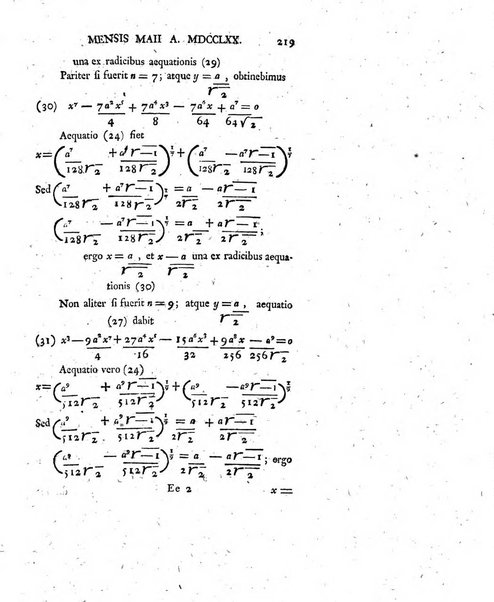 MENSIS MAII A. MDCCLXX. 219
una ex radicibus aequationis (29)
Pariter si fuerit n = 7; atque y = a/r̅2̅, obtinebimus
(30) x⁷ — 7a²x⁵/4 + 7a⁴x³/8 — 7a⁶x/64 + a⁷/64√2 = 0
Aequatio (24) fiet
x = (a⁷/128r̅2̅ + a⁷r̅—̅1̅/128r̅2̅)^(1/7) + (a⁷/128r̅2̅ — a⁷r̅—̅1̅/128r̅2̅)^(1/7)
Sed (a⁷/128r̅2̅ + a⁷r̅—̅1̅/128r̅2̅)^(1/7) = a/2r̅2̅ — ar̅—̅1̅/2r̅2̅
(a⁷/128r̅2̅ — a⁷r̅—̅1̅/128r̅2̅)^(1/7) = a/2r̅2̅ + ar̅—̅1̅/2r̅2̅;
ergo x = a/r̅2̅, et x — a/r̅2̅ una ex radicibus aequa-
tionis (30)
Non aliter si fuerit n = 9; atque y = a/r̅2̅, aequatio
(27) dabit
(31) x⁹ — 9a²x⁷/4 + 27a⁴x⁵/16 — 15a⁶x³/32 + 9a⁸x/256 — a⁹/256r̅2̅ = 0
Aequatio vero (24)
x = (a⁹/512r̅2̅ + a⁹r̅—̅1̅/512r̅2̅)^(1/9) + (a⁹/512r̅2̅ — a⁹r̅—̅1̅/512r̅2̅)^(1/9)
Sed (a⁹/512r̅2̅ + a⁹r̅—̅1̅/512r̅2̅)^(1/9) = a/2r̅2̅ + ar̅—̅1̅/2r̅2̅
(a⁹/512r̅2̅ — a⁹r̅—̅1̅/512r̅2̅)^(1/9) = a/2r̅2̅ — ar̅—̅1̅/2r̅2̅; ergo
Ee 2 x =